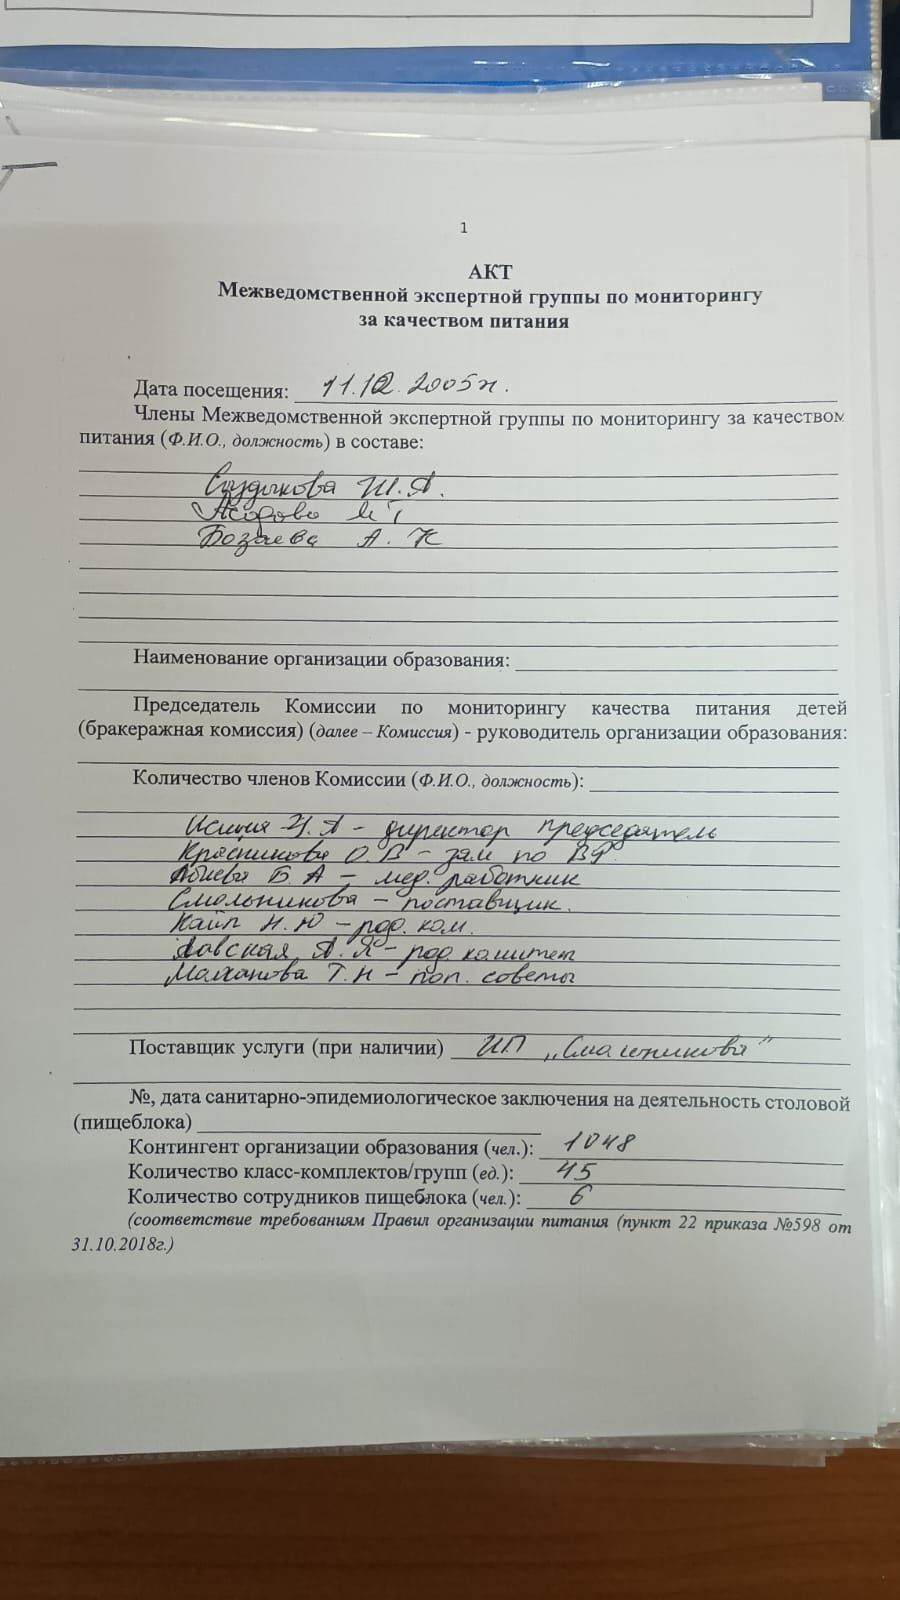 1
АКТ
Межведомственной экспертной группы по мониторингу
за качеством питания
Дата посещения: 2005ж.
Члены Межведомственной экспертной группы по мониторингу за качеством
питания (Ф.И.О., должность) в составе:
Сыздыкова Ш.А.
Бозаева А. К
Наименование организации образования:
Председатель Комиссии по мониторингу качества питания детей
(бракеражная комиссия) (далее – Комиссия) - руководитель организации образования:
Количество членов Комиссии (Ф.И.О., должность):
– директор председатель
Красникова О.В – зам по ВР
Б.А – мед. работник
Смольникова – поставщик.
Кайп Н.Ю – род. ком.
А.Я – род комитет
Малханова Т.Н – поп. советы
Поставщик услуги (при наличии) ИП „Смольникова”
№, дата санитарно-эпидемиологическое заключения на деятельность столовой
(пищеблока)
Контингент организации образования (чел.): 1048
Количество класс-комплектов/групп (ед.): 45
Количество сотрудников пищеблока (чел.): 6
(соответствие требованиям Правил организации питания (пункт 22 приказа №598 от
31.10.2018г.)